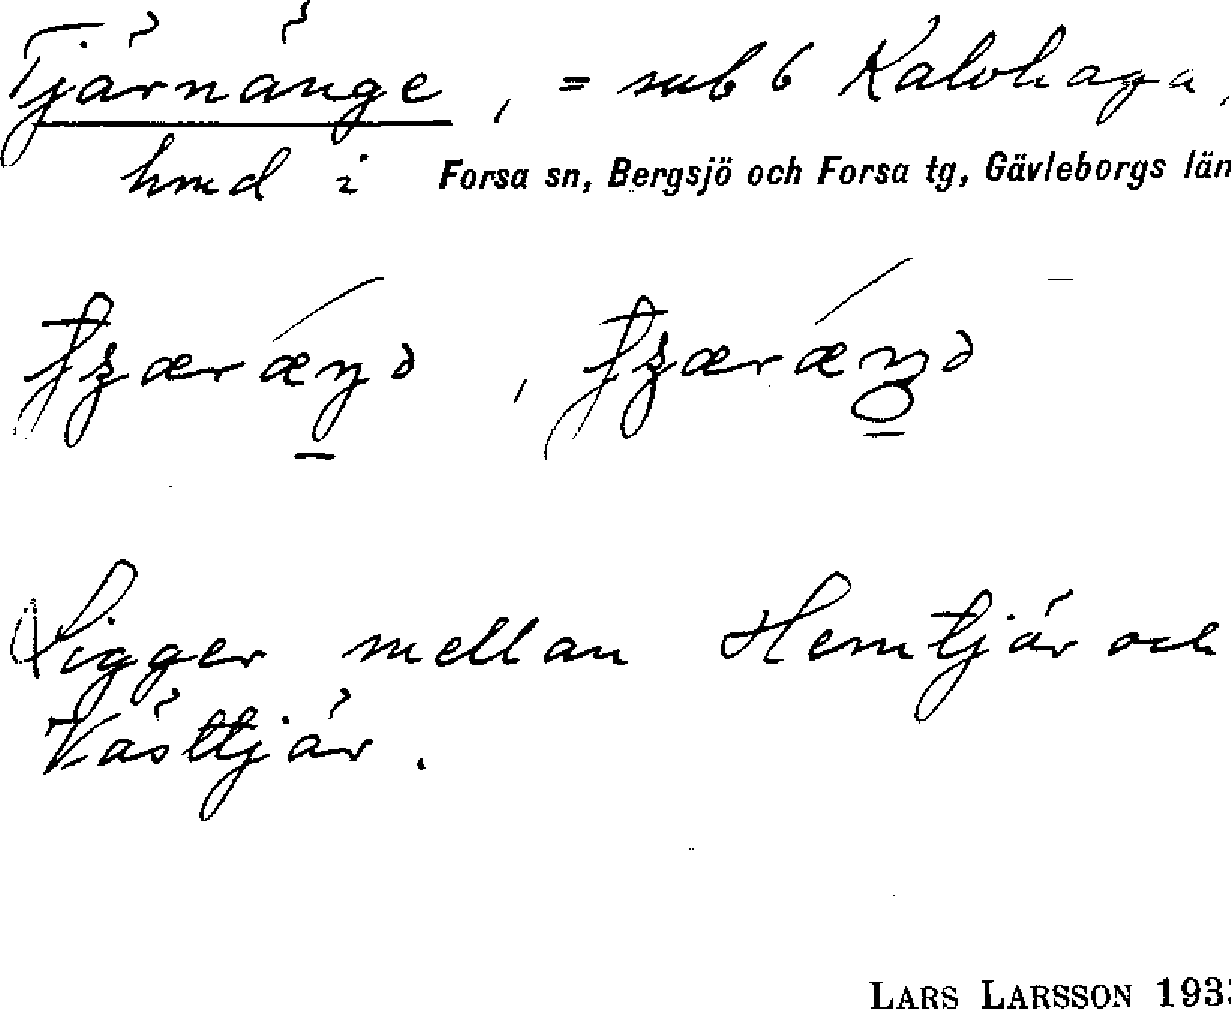 Tjärnänge, = sub 6 Kalvhaga,
hmd i Forsa sn, Bergsjö och Forsa tg, Gävleborgs län
Ligger mellan Hemtjär och
Västtjär.
LARS LARSSON 193